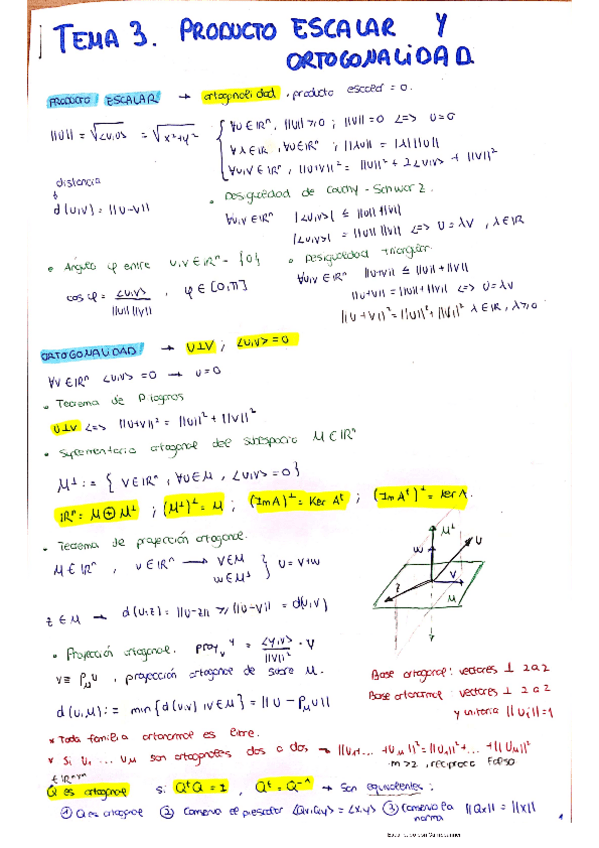 TEMA 3. PRODUCTO ESCALAR Y
ORTOGONALIDAD
PRODUCTO ESCALAR → ortogonalidad, producto escalar = 0.
||U|| = √<U,U> = √x²+y²
∀U∈ℝⁿ, ||U|| ≥ 0 ; ||U|| = 0 <=> U=0
∀λ∈ℝ, ∀U∈ℝⁿ ; ||λU|| = |λ| ||U||
∀U,V∈ℝⁿ, ||U+V||² = ||U||² + 2<U,V> + ||V||²
distancia
d(U,V) = ||U-V||
• Desigualdad de Cauchy-Schwarz.
∀U,V∈ℝⁿ |<U,V>| ≤ ||U|| ||V||
|<U,V>| = ||U|| ||V|| <=> U=λV, λ∈ℝ
• Ángulo φ entre U,V∈ℝⁿ-{0}
cos φ = <U,V> / ||U|| ||V|| , φ∈[0,π]
• Desigualdad triangular.
∀U,V∈ℝⁿ ||U+V|| ≤ ||U||+||V||
||U+V|| = ||U||+||V|| <=> U=λV
||U+V||² = ||U||²+||V||² λ∈ℝ, λ≥0
ORTOGONALIDAD → U⊥V ; <U,V> = 0
∀V∈ℝⁿ <U,V> = 0 → U=0
• Teorema de Pitágoras
U⊥V <=> ||U+V||² = ||U||² + ||V||²
• Suplementario ortogonal del subespacio M∈ℝⁿ
M⊥ := { V∈ℝⁿ, ∀U∈M, <U,V>=0 }
ℝⁿ = M⊕M⊥ ; (M⊥)⊥ = M ; (Im A)⊥ = Ker Aᵗ ; (Im Aᵗ)⊥ = Ker A.
• Teorema de proyección ortogonal.
M∈ℝⁿ, U∈ℝⁿ → V∈M
W∈M⊥ } U = V+W
M⊥
W
U
Z
V
M
Z∈M → d(U,Z) = ||U-Z|| ≥ ||U-V|| = d(U,V)
• Proyección ortogonal. proy_v y = <y,v> / ||v||² · v
V ≡ P_M U, proyección ortogonal de sobre M.
d(U,M) := min{d(U,V) | V∈M} = ||U - P_M U||
Base ortogonal: vectores ⊥ 2 a 2
Base ortonormal: vectores ⊥ 2 a 2
y unitaria ||Ui||=1
* Toda familia ortonormal es libre.
* Si U₁ ... U_M son ortogonales dos a dos → ||U₁+...+U_M||² = ||U₁||²+...+||U_M||²
m>2, recíproco falso
Q es ortogonal si QᵗQ = I, Qᵗ = Q⁻¹ → Son equivalentes:
① Q es ortogonal ② Conserva el <Qx,Qy> = <x,y> ③ Conserva la norma ||Qx|| = ||x||